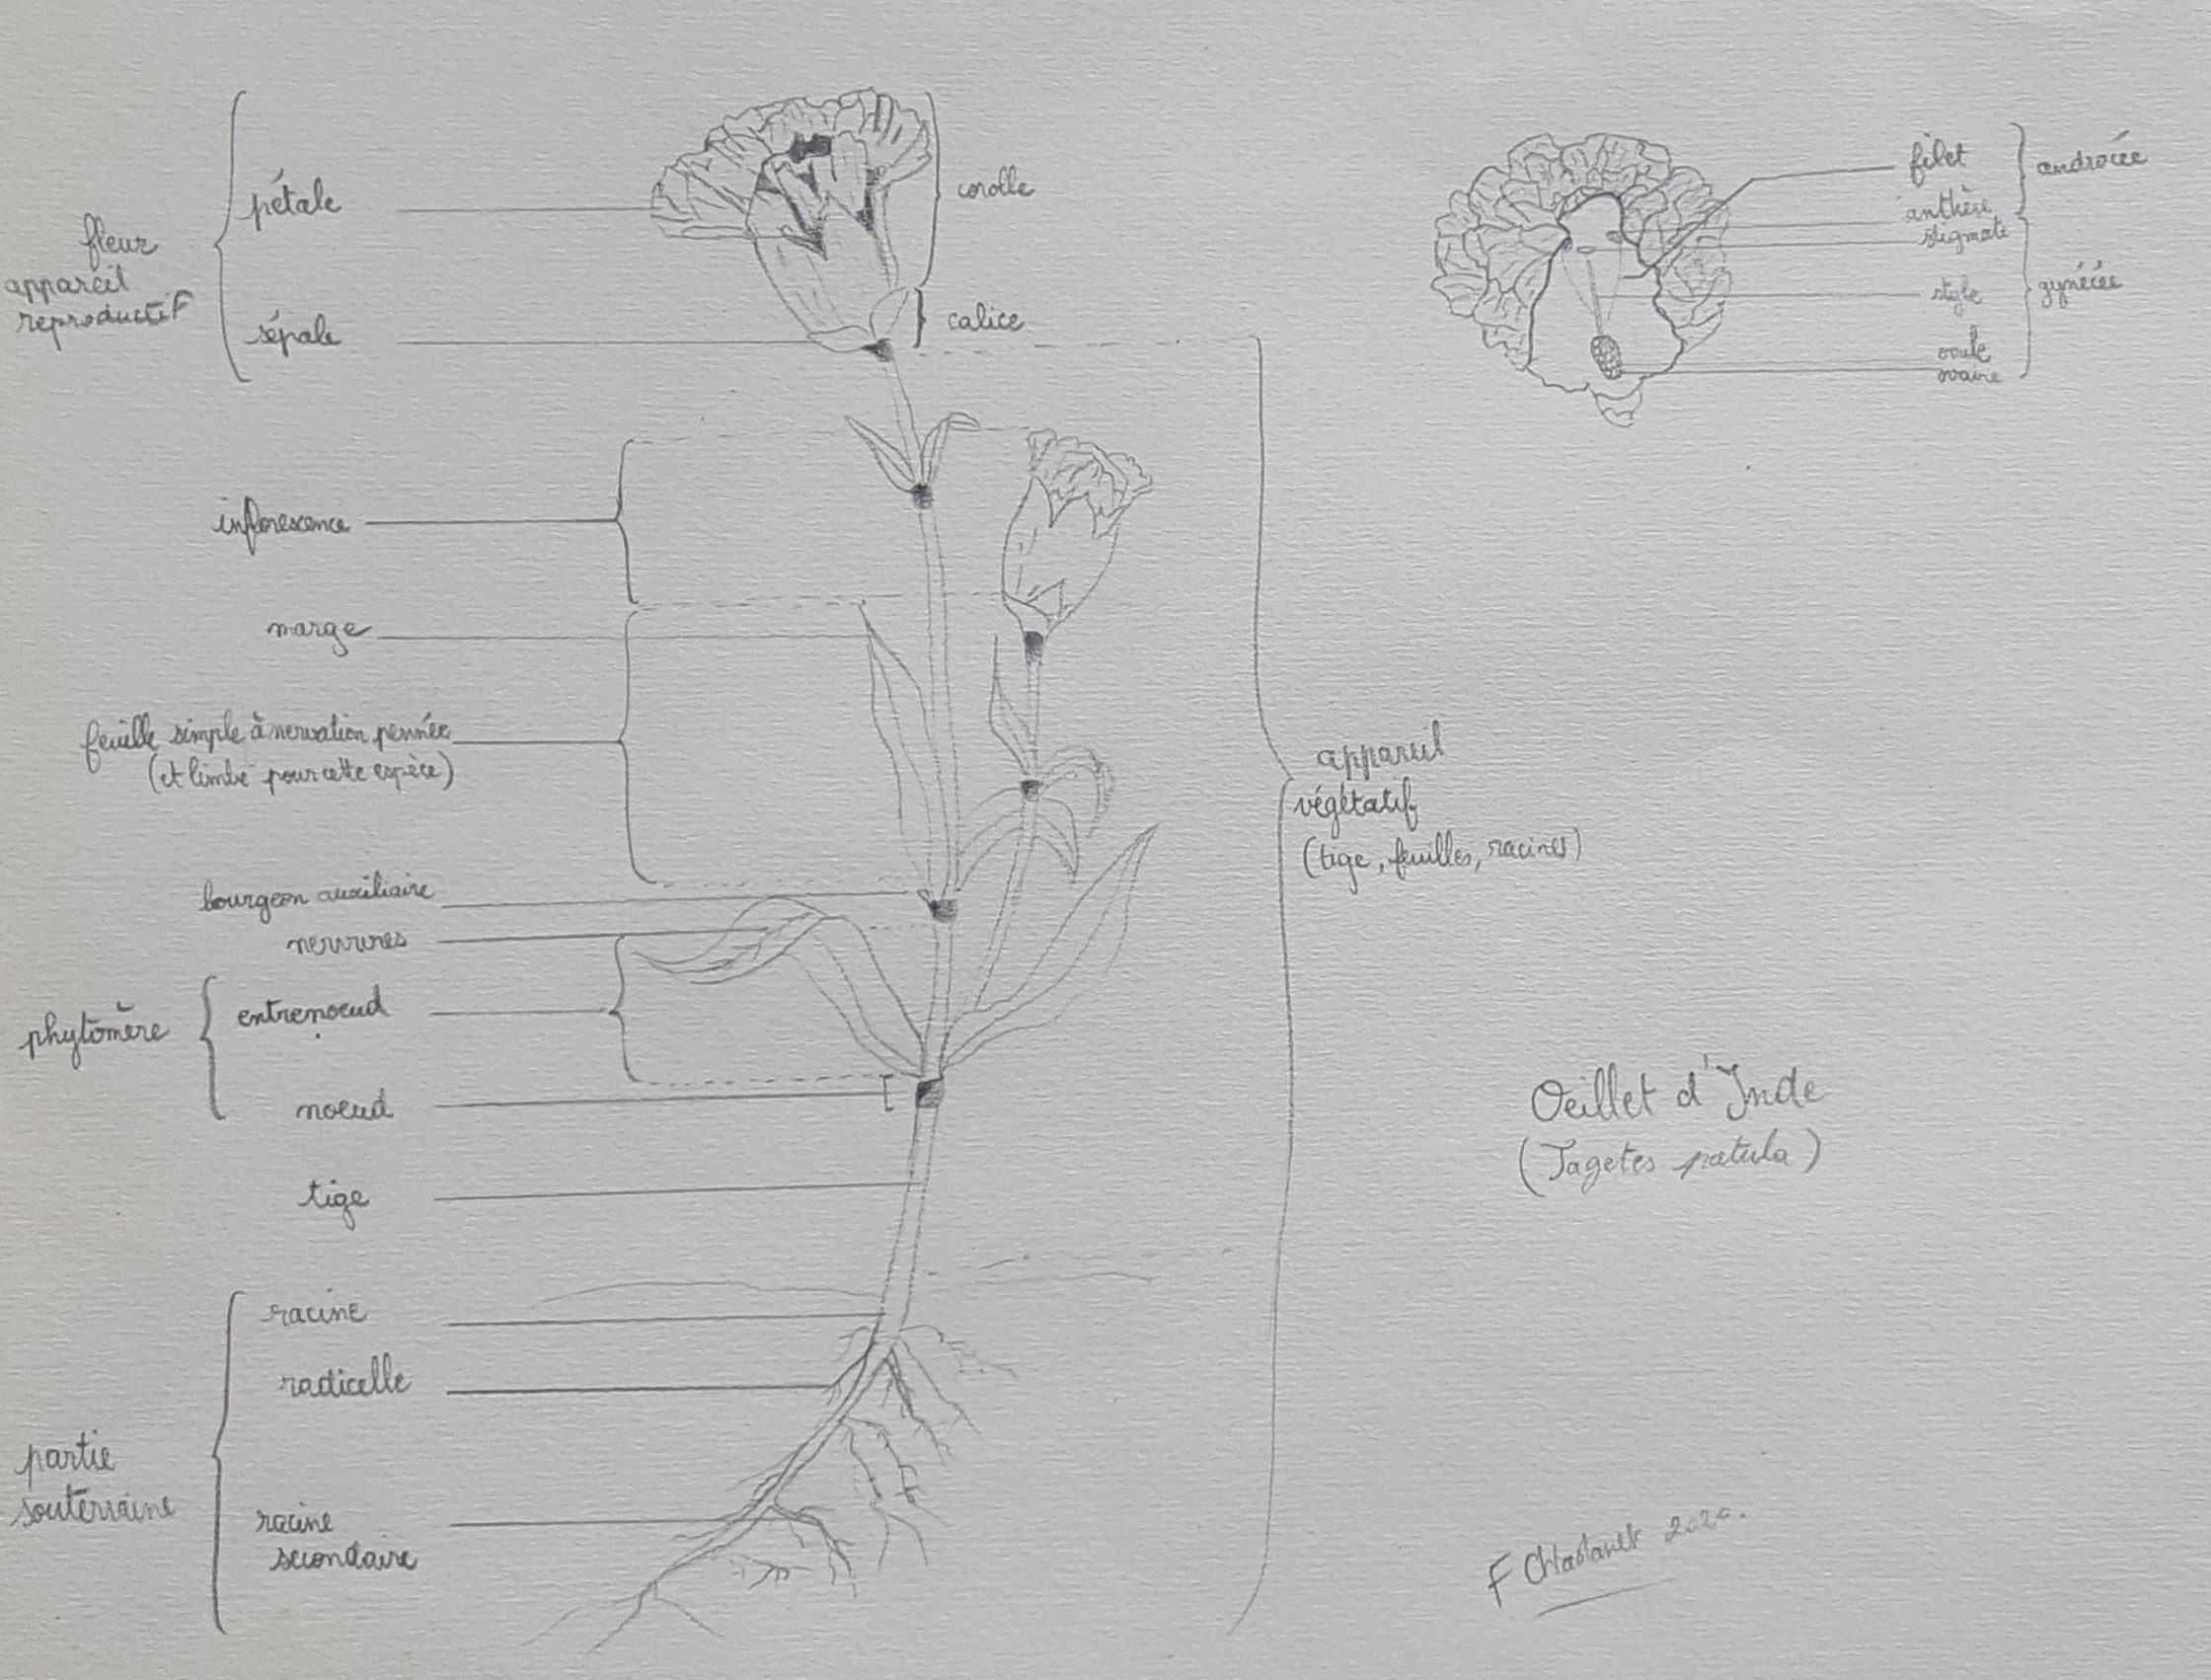 fleur
appareil
reproductif
pétale
sépale
corolle
calice
inflorescence
marge
feuille simple à nervation pennée
(et limbe pour cette espèce)
bourgeon auxiliaire
nervures
phytomère
entrenoeud
noeud
tige
partie
souterraine
racine
radicelle
racine
secondaire
appareil
végétatif
(tige, feuilles, racines)
filet
anthère
stigmate
style
ovule
ovaire
androcée
gynécée
Oeillet d'Inde
(Tagetes patula)
F Chastanet 2020.